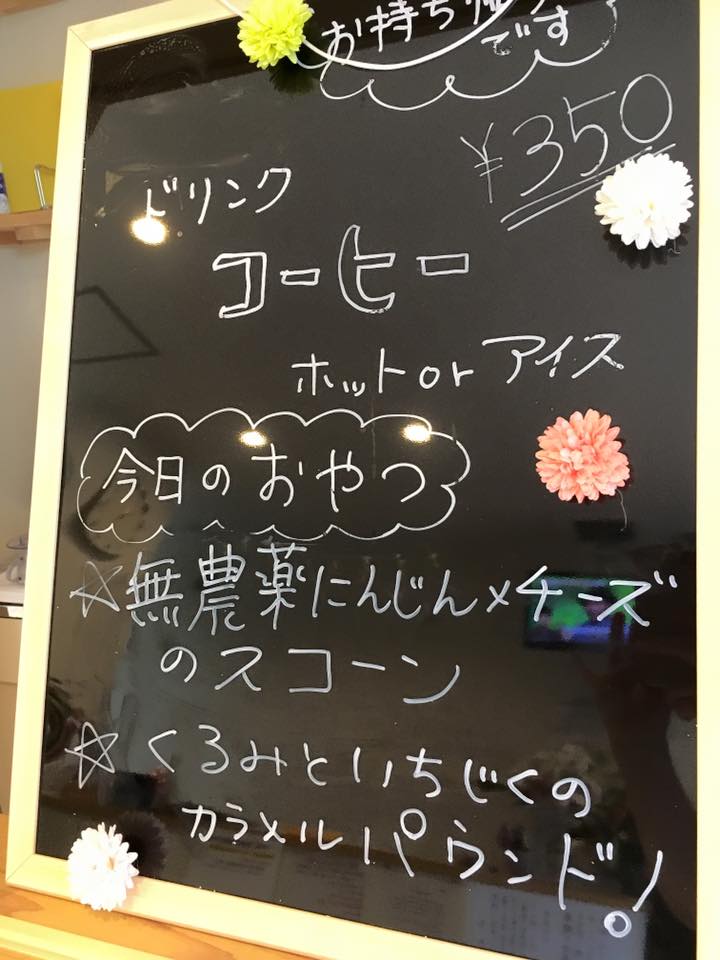 お持ち帰り
です
¥350
ドリンク
コーヒー
ホットorアイス
今日のおやつ
☆無農薬にんじん×チーズ
のスコーン
☆くるみといちじくの
カラメルパウンド!